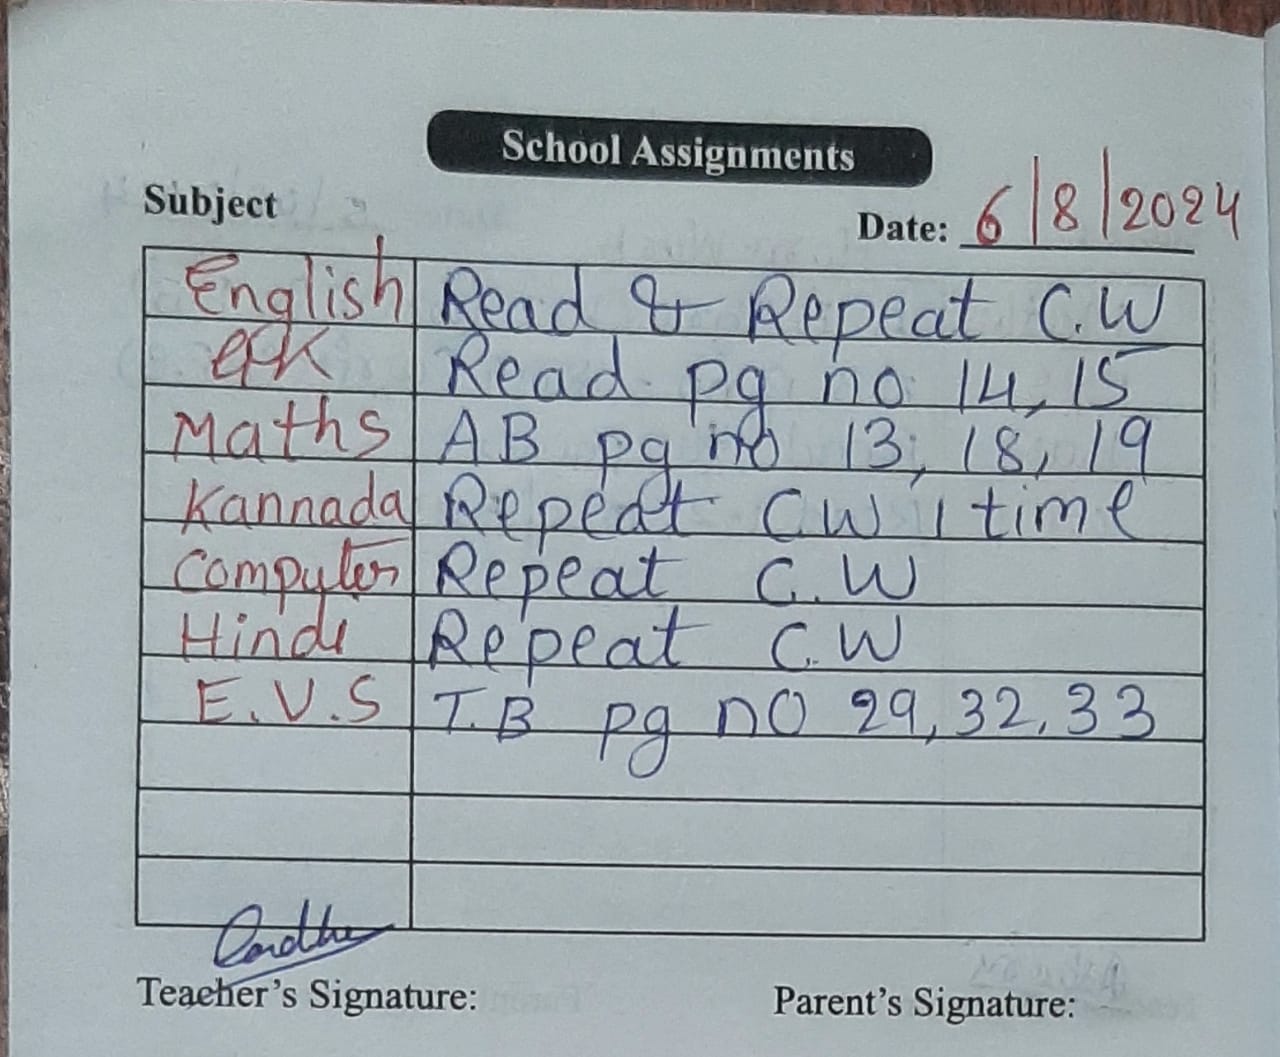 School Assignments
Subject
Date: 6/8/2024
English Read & Repeat C.W
GK Read pg no 14, 15
Maths AB pg no 13, 18, 19
Kannada Repeat CW 1 time
Computer Repeat C.W
Hindi Repeat C.W
E.V.S T.B pg no 29, 32, 33
Teacher's Signature:
Parent's Signature: